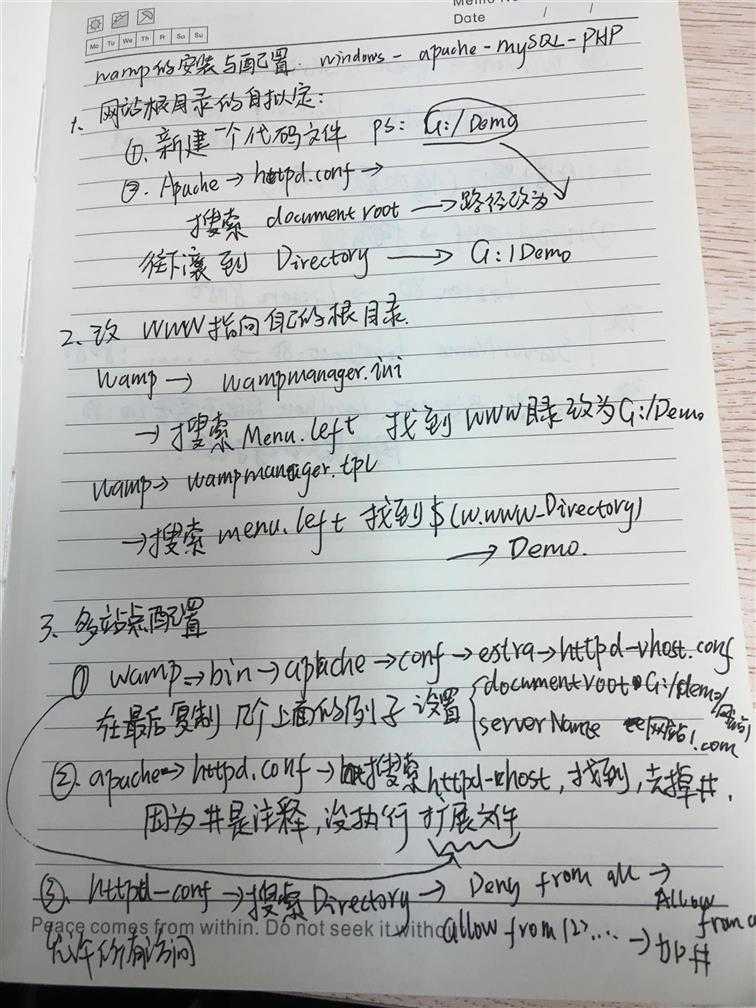 Memo No.
Date / /
Mo Tu We Th Fr Sa Su
wamp的安装与配置: windows - apache - mySQL - PHP
1、网站根目录的自拟定:
①、新建一个代码文件 ps: G:/Demo
②. Apache → httpd.conf →
搜索 document root → 路径改为
往下滚到 Directory → G:/Demo
2、改 WWW 指向自己的根目录.
wamp → wampmanager.ini
→ 搜索 Menu.left 找到 WWW目录改为G:/Demo
wamp → wampmanager.tpl
→搜索 menu.left 找到 $(w.www_Directory)
→ Demo.
3、多站点配置
① wamp → bin → apache → conf → estra → httpd-vhost.conf
在最后复制几个上面的例子 设置 { documentroot G:/demo/网站1
serverName 网站1.com
②. apache → httpd.conf → 搜索httpd-vhost, 找到, 去掉#.
因为#是注释, 没执行 扩展文件
③. httpd-conf → 搜索 Directory → Deny from all → Allow from a
allow from 127... → 加#
允许所有访问
Peace comes from within. Do not seek it witho